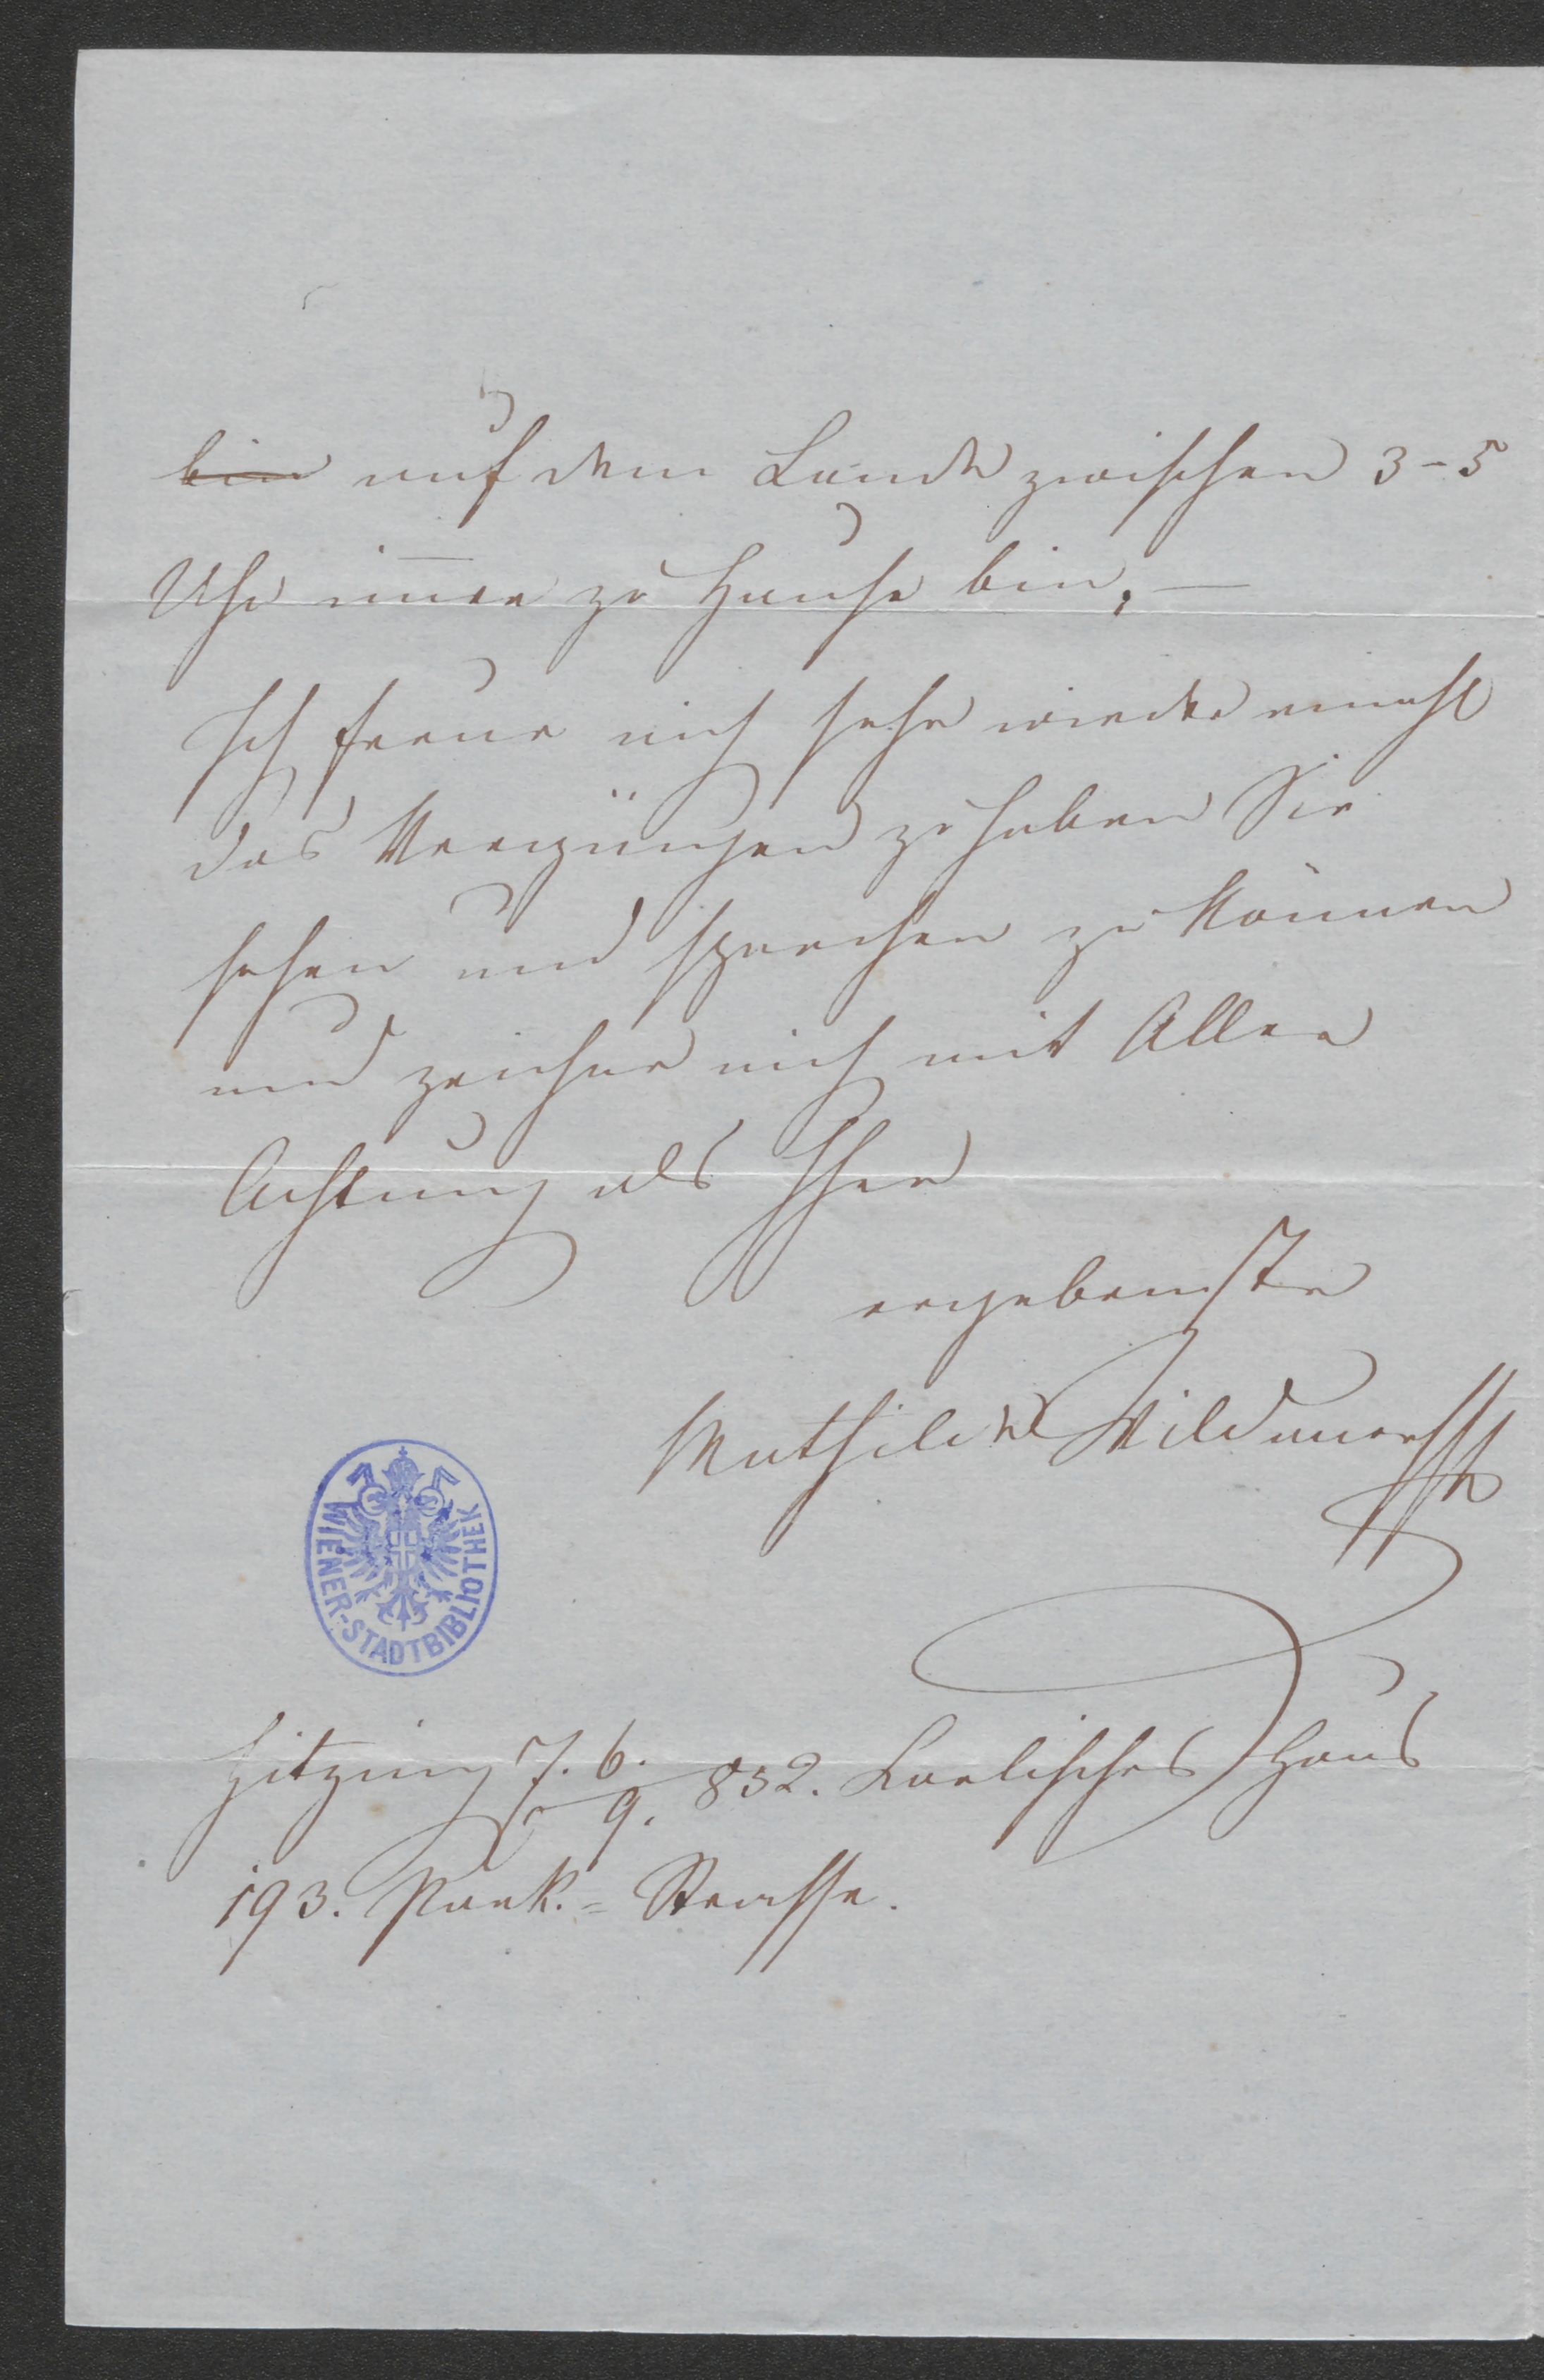 bin auf dem Lande zwischen 3-5
Uhr im̅er zu Hause bin, —
Ich freue mich sehr wieder einmahl
das Vergnügen zu haben Sie
sehen und sprechen zu können
und zeichne mich mit Aller
Achtung als Ihre
ergebenste
Mathilde Wildauer
WIENER-STADTBIBLIOTHEK
Hitzing 6. 9. 852. Haus
193. Park.= Strasse.